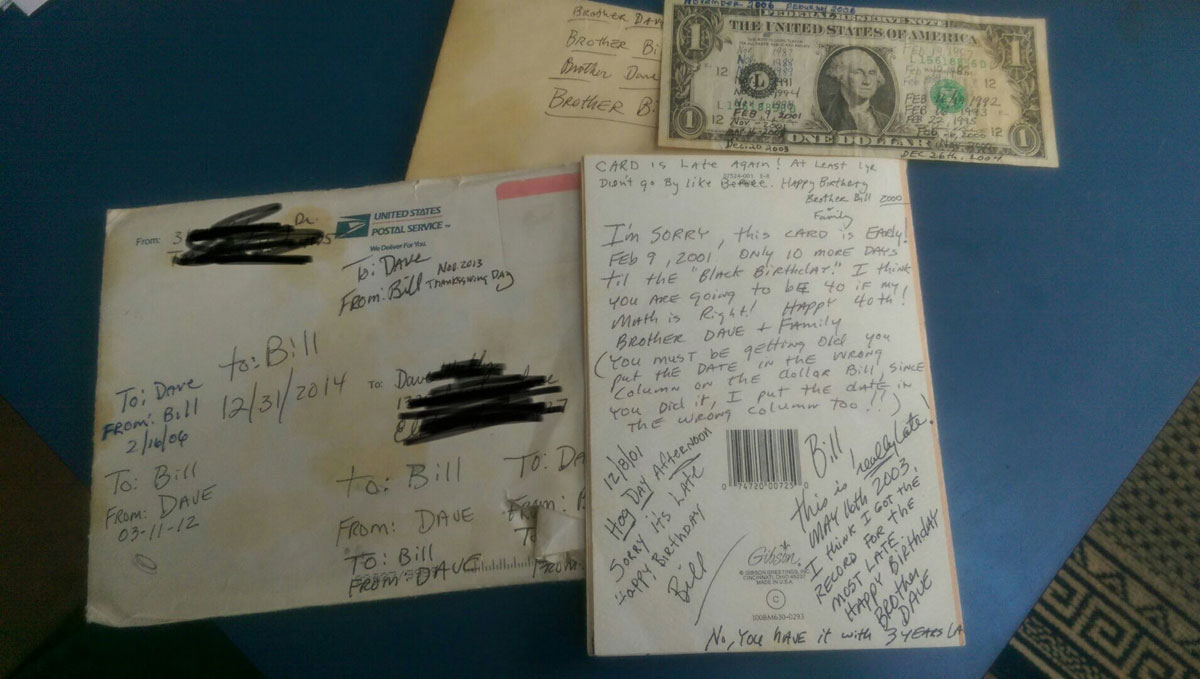 Brother Dav
Brother Bi
Brother Dave
Brother B
November 2006
FEDERAL RESERVE NOTE
THE UNITED STATES OF AMERICA
1
1
12
12
L
1987
1988
FEB 9, 2001
Nov. 2001
Dec 20 2003
FEB 1992
1993
FEB 22 1995
2000
12
12
1
1
ONE DOLLAR
DEC 26th, 2004
From: 3
Dr.
UNITED STATES
POSTAL SERVICE™
We Deliver For You.
To: DAVE
From: Bill
Nov 2013
THANKSGIVING DAY
to: Bill
12/31/2014
To: Dave
To: Dave
From: Bill
2/16/06
To: Bill
From: DAVE
03-11-12
to: Bill
From: DAVE
To: Bill
From: DAVE
To: DA
From: B
To
From:
CARD is LAte AgAin! At LeAst 1yr
Didn't go By like Before. Happy Birthday
Brother Bill 2000
+
Family
I'm SORRY, this CARD is EARly!
Feb 9, 2001. Only 10 more DAYS
til the "Black Birthday." I think
you ARE going to be 40 if my
MAth is Right! HAppy 40th!
Brother DAVE + Family
(You must be getting old you
put the DAte in the WRONG
Column on the dollar Bill, since
you Did it, I put the date in
the wrong column too!!)
12/8/01
Hog DAY AfterNOON
Sorry it's LAte
Happy Birthday
Bill
0 74720 00725 0
Gibson
© GIBSON GREETINGS, INC.
CINCINNATI, OHIO 45237
MADE IN U.S.A.
C
100BM630-0293
Bill,
this is really LAte!
MAY 16th 2003.
I think I got the
Record for the
most LAte.
HAppy Birthday
Brother
DAVE
No, You HAVE it with 3 YEARS LA